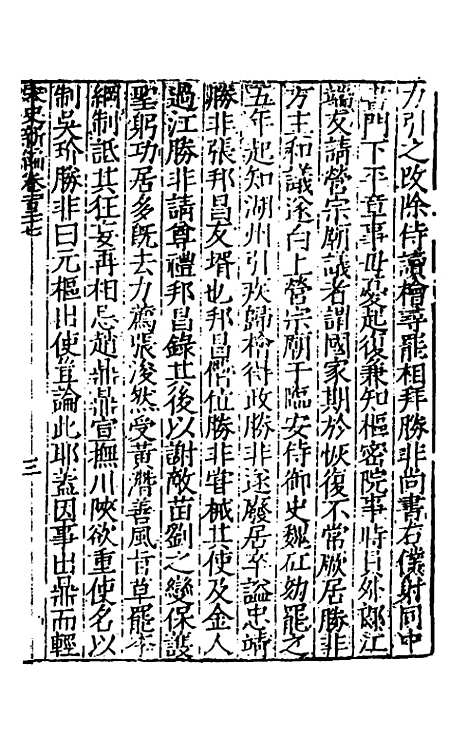 力引之改除侍讀檜尋罷相拜勝非尚書右僕射同中
書門下平章事丗憂起復兼知樞密院事時員外郎江
端友請營宗廟議者謂國家期於恢復不常厥居勝非
方主和議遂白上營宗廟于臨安侍御史魏矼劾罷之
五年起知湖州引疾歸檜得政勝非遂廢居卒謚忠靖
勝非張邦昌友壻也邦昌僭位勝非甞械其使及金人
過江勝非請尊禮邦昌錄其後以謝敵苗劉之變保護
聖躬功居多既去力薦張浚然受黃潛善風旨草罷李
綱制詆其狂妄再相忌趙鼎鼎宣撫川陝欲重使名以
制吳玠勝非曰元樞出使豈論此耶蓋因事出鼎而輕
宋史新編卷一百二十七
三